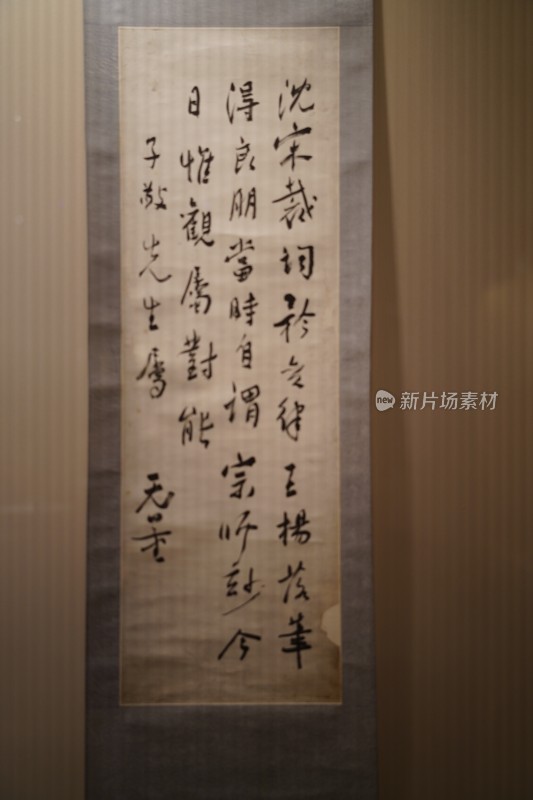 沈宋裁詞矜变律王楊落筆
得良朋當時自謂宗師妙今
日惟觀屬對能
子敬先生屬
无量
new 新片场素材